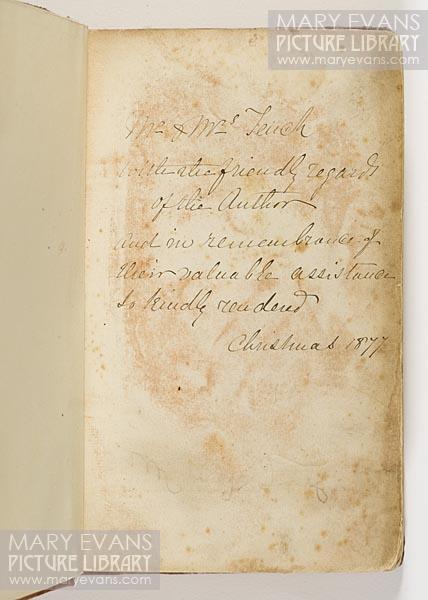 MARY EVANS
PICTURE LIBRARY
www.maryevans.com
Mr & Mrs
with the friendly regards
of the Author
and in remembrance of
their valuable assistance
so kindly rendered
Christmas 1877
MARY EVANS
PICTURE LIBRARY
www.maryevans.com
MARY EVANS
PICTURE LIBRARY
www.maryevans.com